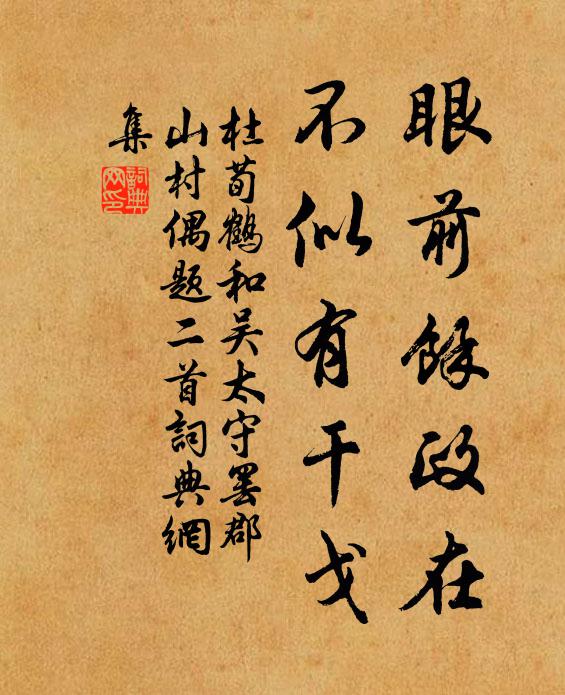 眼前餘政在
不似有干戈
杜荀鶴和吴太守罢郡
山村偶题二首詞典網
集
詞典
网印